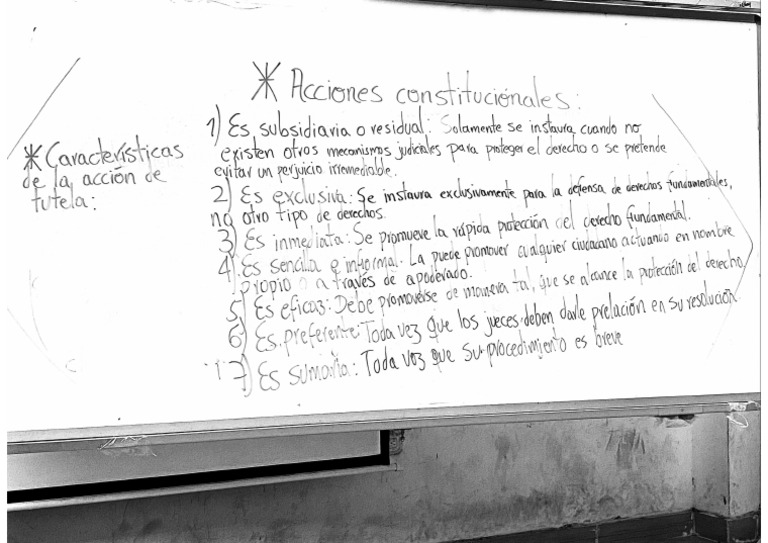 * Acciones constitucionales:
* Características
de la acción de
tutela:
1) Es subsidiaria o residual: Solamente se instaura cuando no
existen otros mecanismos judiciales para proteger el derecho o se pretende
evitar un perjuicio irremediable.
2) Es exclusiva: Se instaura exclusivamente para la defensa de derechos fundamentales,
no otro tipo de derechos.
3) Es inmediata: Se promueve la rápida protección del derecho fundamental.
4) Es sencilla e informal. La puede promover cualquier ciudadano actuando en nombre
propio o a través de apoderado.
5) Es eficaz: Debe promoverse de manera tal, que se alcance la protección del derecho.
6) Es preferente: Toda vez que los jueces deben darle prelación en su resolución.
7) Es sumaria: Toda vez que su procedimiento es breve